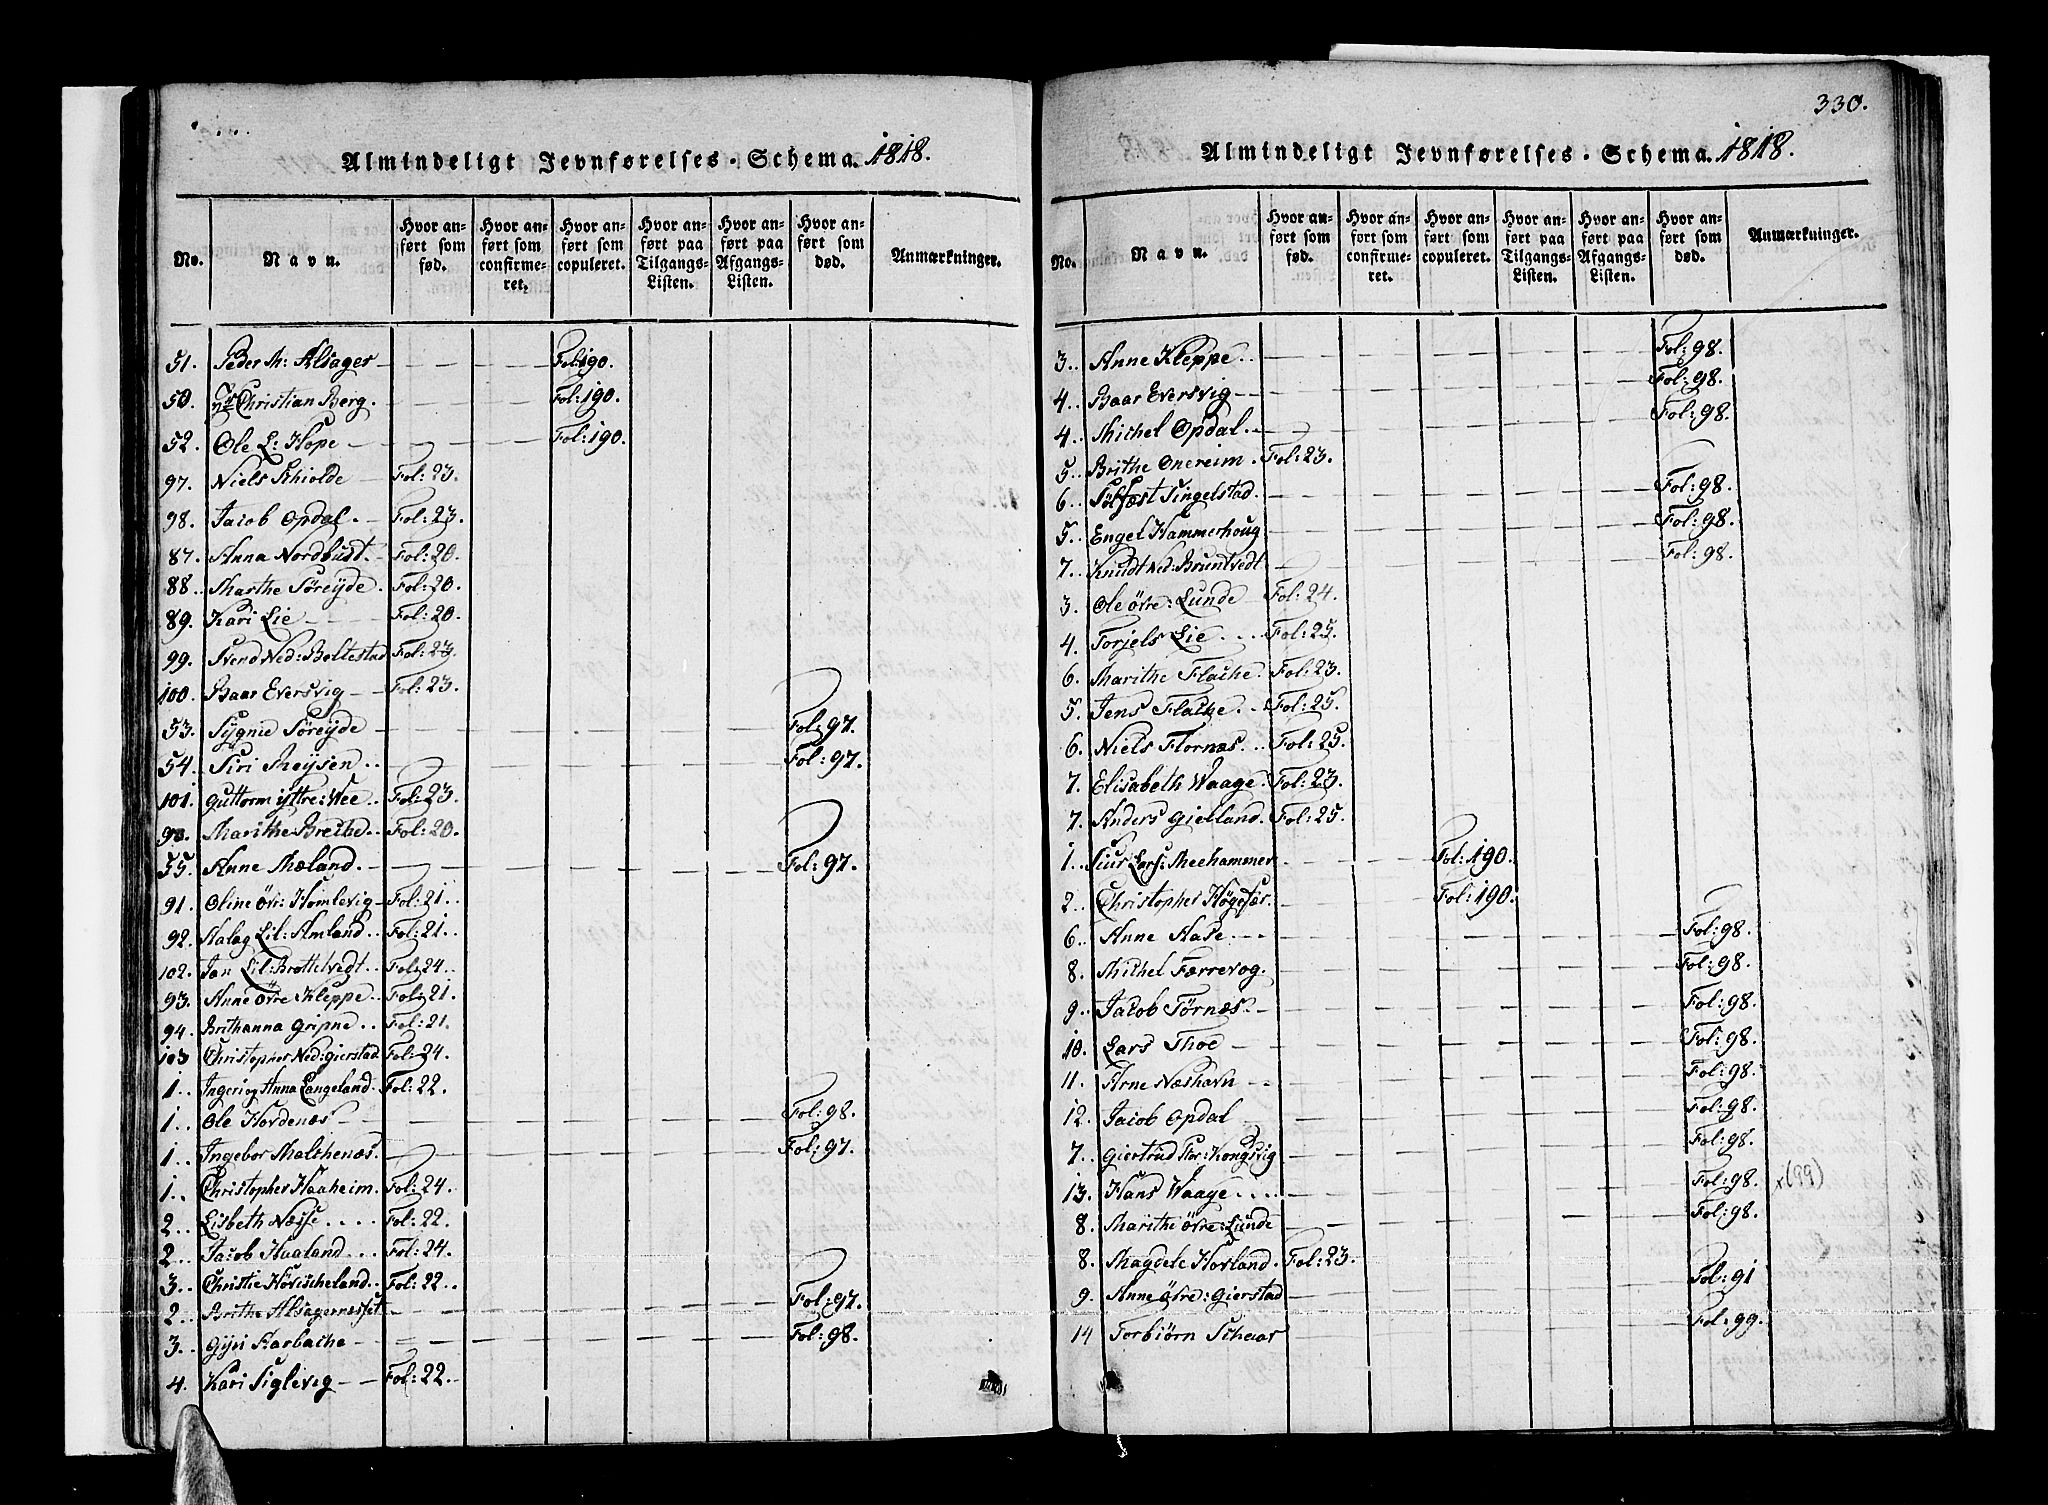 Almindeligt Jevnførelses-Schema. 1818.
No. Navn. Hvor anført som fød. Hvor anført som confirmeret. Hvor anført som copuleret. Hvor anført paa Tilgangs-Listen. Hvor anført paa Afgangs-Listen. Hvor anført som død. Anmærkninger.
51. Peder M: Alsager Fol:190.
50. Christian Berg. Fol:190.
52. Ole L: Hope Fol:190.
97. Niels Schiolde Fol:23.
98. Jacob Opdal. Fol:23.
87. Anna Nordbust. Fol:20.
88. Marthe Søreyde. Fol:20.
89. Kari Lie Fol:20.
99. Svend Ned:Boltestad Fol:23.
100. Baar Eversvig Fol:23.
53. Sygnie Søreyde Fol:97.
54. Siri Røysen Fol:97.
101. Guttorm yttre:Wee Fol:23.
90. Marithe Breche Fol:20.
55. Anne Mæland Fol:97.
91. Oline Øvr:Homlevig Fol:21.
92. Aalag Lil:Amland Fol:21.
102. Jan Lil:Brottetvedt Fol:24.
93. Anne Øvre Kleppe Fol:21.
94. Brithanna Gripne Fol:21.
103 Christopher Ned:Gierstad Fol:24.
1. Ingeri og Anna Langeland Fol:22.
1. Ole Hordenæs Fol:98.
1. Ingebor Malchenæs. Fol:97.
1. Christopher Haaheim. Fol:24.
2. Lisbeth Næsse Fol:22.
2. Jacob Haaland Fol:24.
3. Christie Hövischeland Fol:22.
2. Brithe Alsagernesset Fol:97.
3. Gyri Skarbache Fol:98.
4. Kari Siglevig Fol:22.
330.
Almindeligt Jevnførelses-Schema. 1818.
No. Navn. Hvor anført som fød. Hvor anført som confirmeret. Hvor anført som copuleret. Hvor anført paa Tilgangs-Listen. Hvor anført paa Afgangs-Listen. Hvor anført som død. Anmærkninger.
3. Anne Kleppe Fol:98.
4. Baar Eversvig Fol:98.
4. Michel Opdal Fol:98.
5. Brithe Onereim Fol:23.
6. Singelstad. Fol:98.
5. Engel Hammerhoug Fol:98.
7. Knudt Ned:Bruntvedt Fol:98.
3. Ole Øvre:Lunde Fol:24.
4. Torjels Lie Fol:25.
6. Marithe Flache. Fol:23.
5. Jens Flache Fol:25.
6. Niels Flornæs Fol:25.
7. Elisabeth Waage. Fol:23.
7. Anders Gielland Fol:25.
1. Siur Lars: Meehammer Fol:190.
2. Christopher Högesæt. Fol:190.
6. Anne Aase Fol:98.
8. Michel Færrevog. Fol:98.
9. Jacob Törnæs Fol:98.
10. Lars Thoe Fol:98.
11. Arne Næshavn Fol:98.
12. Jacob Opdal Fol:98.
7. Giertrud Stor:Kongsvig Fol:98.
13. Hans Waage Fol:98. x(99)
8. Marithe Øvre:Lunde Fol:98.
8. Magdele Hovland Fol:23.
9. Anne Øvre:Gierstad Fol:91
14 Torbiörn Schaar Fol:99.